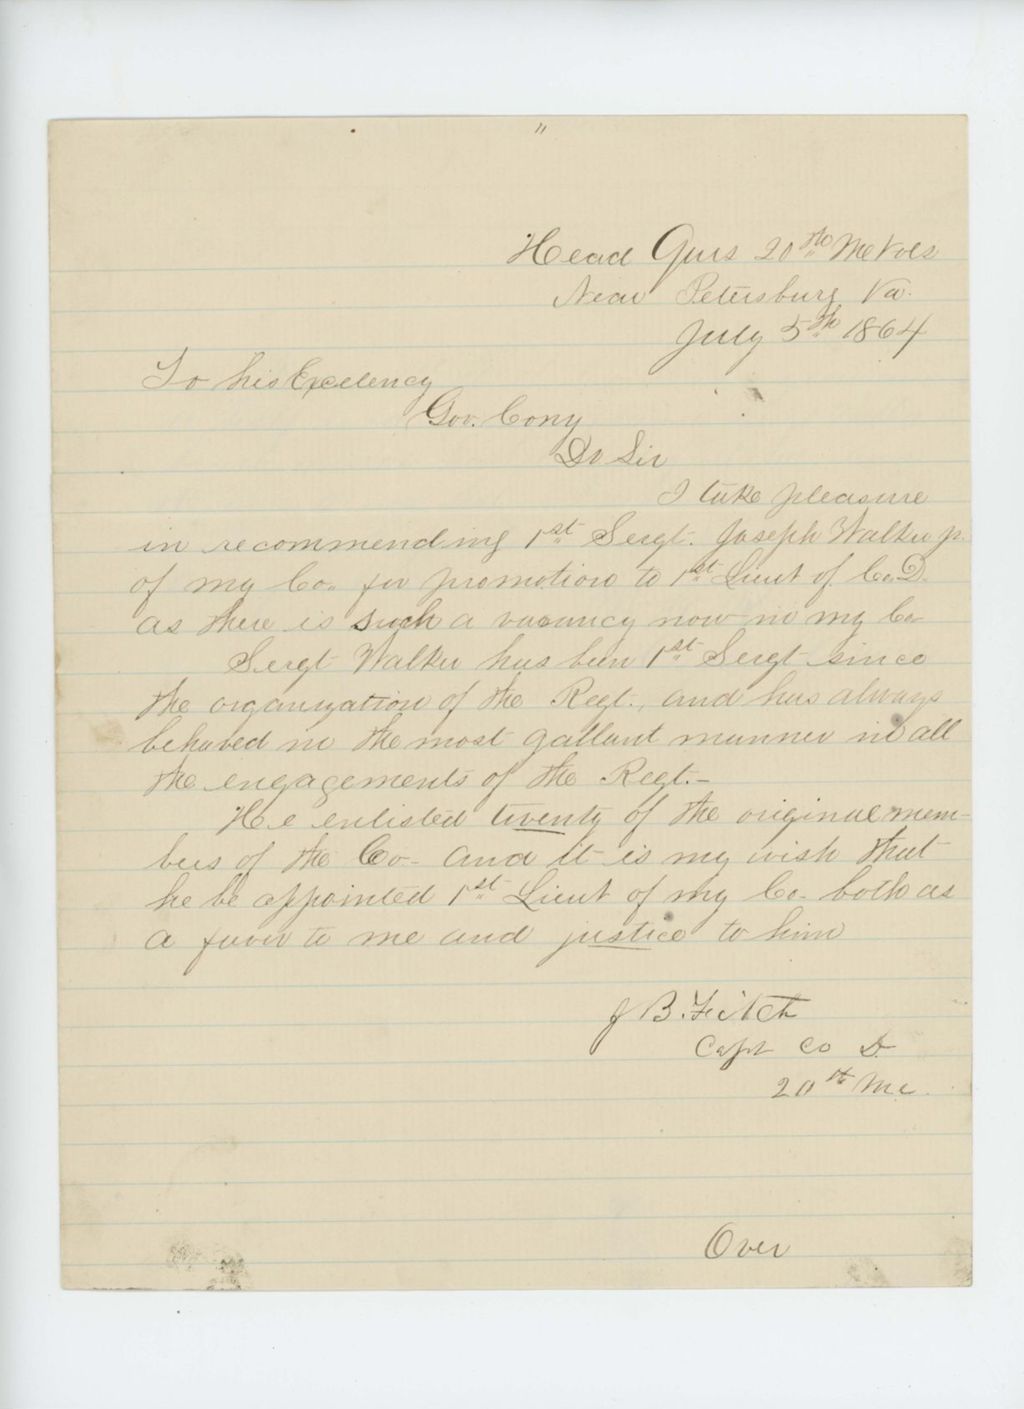 Head Qurs 20th Me Vols
Near Petersburg Va.
July 5th 1864
To his Excelency
Gov. Cony
Dr Sir
I take pleasure
in recommending 1st Sergt. Joseph Walker jr.
of my Co. for promotion to 1st Lieut of Co. D.
as there is such a vacancy now in my Co
Sergt Walker has been 1st Sergt since
the organization of the Regt., and has always
behaved in the most gallant manner in all
the engagements of the Regt.-
He enlisted twenty of the original mem-
bers of the Co- and it is my wish that
he be appointed 1st Lieut of my Co- both as
a favor to me and justice to him
J B. Fitch
Capt Co D
20th Me.
Over